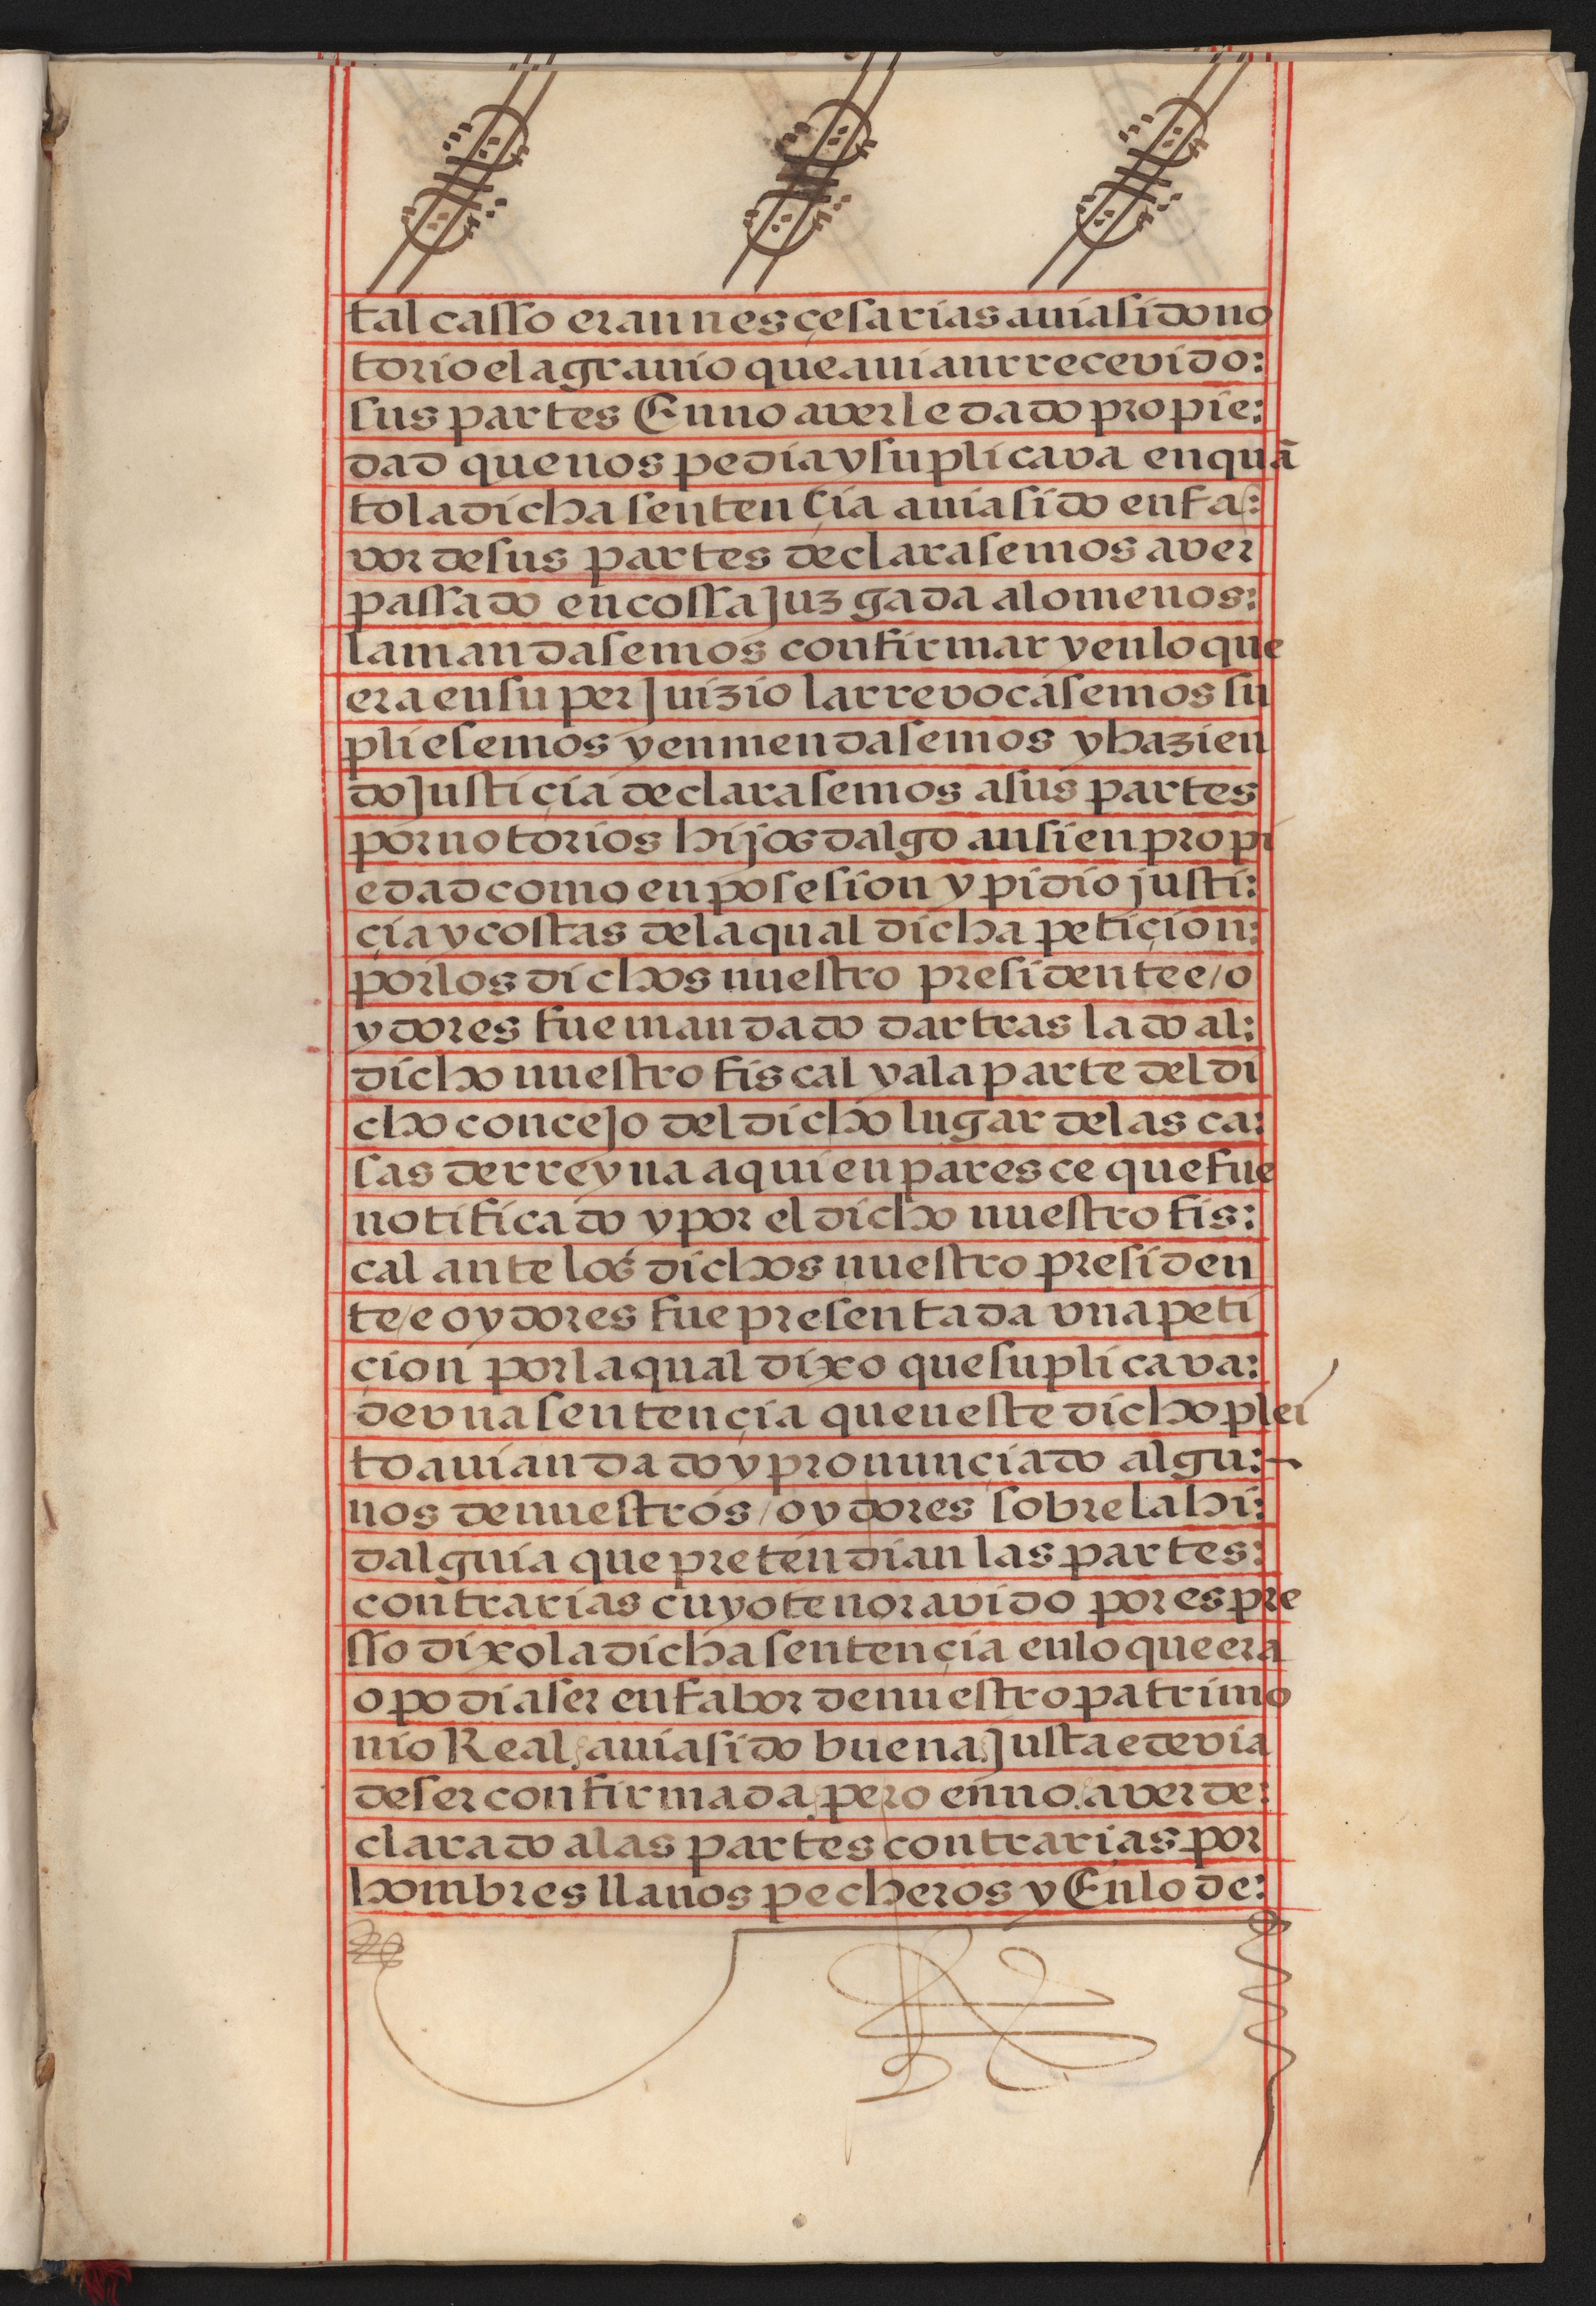 tal casso eran nesçesarias auia sido no
torio el agrauio que auian rrecevido:
sus partes En no aver le dado propie:
dad que nos pedia y suplicava en quã
to la dicha sentençia auia sido en fa:
vor de sus partes declarasemos aver
passado en cossa Juzgada a lo menos:
la mandasemos confirmar y en lo que
era en su perJuizio la rrevocasemos su
pliesemos y enmendasemos y hazien
do Justiçia declarasemos a sus partes
por notorios hijosdalgo ansi en propi
edad como en posesion y pidio justi:
çia y costas de la qual dicha petiçion:
por los dichos nuestro presidente e/o
ydores fue mandado dar traslado al:
dicho nuestro fiscal y a la parte del di
cho conceJo del dicho lugar de las ca:
sas de rreyna a quien paresce que fue
notificado y por el dicho nuestro fis:
cal ante los dichos nuestro presiden
te/e oydores fue presentada vna peti
çion por la qual dixo que suplicava:
de vna sentençia queneste dicho plei
to auian dado y pronunçiado algu:
nos de nuestros/oydores sobre la hi:
dalguia que pretendian las partes:
contrarias cuyo tenor avido por espre
sso dixo la dicha sentençia en lo que era
o podia ser en fabor de nuestro patrimo
nio Real auia sido buena Justa e devia
de ser confirmada pero en no aver de:
clarado a las partes contrarias por
hombres llanos pecheros y En lo de: